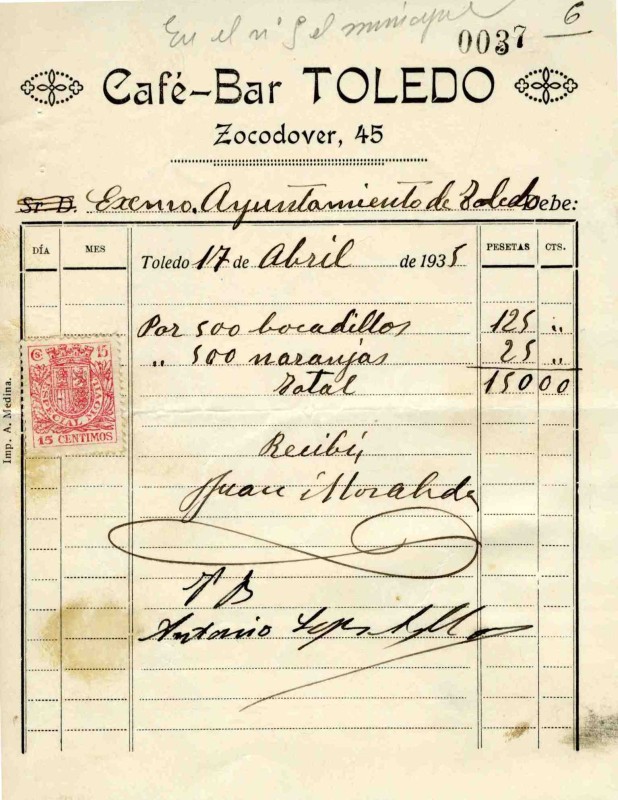 En el nº 9 el
0037
6
Café-Bar TOLEDO
Zocodover, 45
Sr. D. Exmo. Ayuntamiento de Toledo Debe:
DÍA MES PESETAS CTS.
Toledo 17 de Abril de 1935
Por 500 bocadillos 125 "
" 500 naranjas 25 "
Total 150 00
15
ESPECIAL MÓVIL
15 CENTIMOS
Imp. A. Medina.
Recibí,
Juan Moraleda
Vº Bº
Antonio